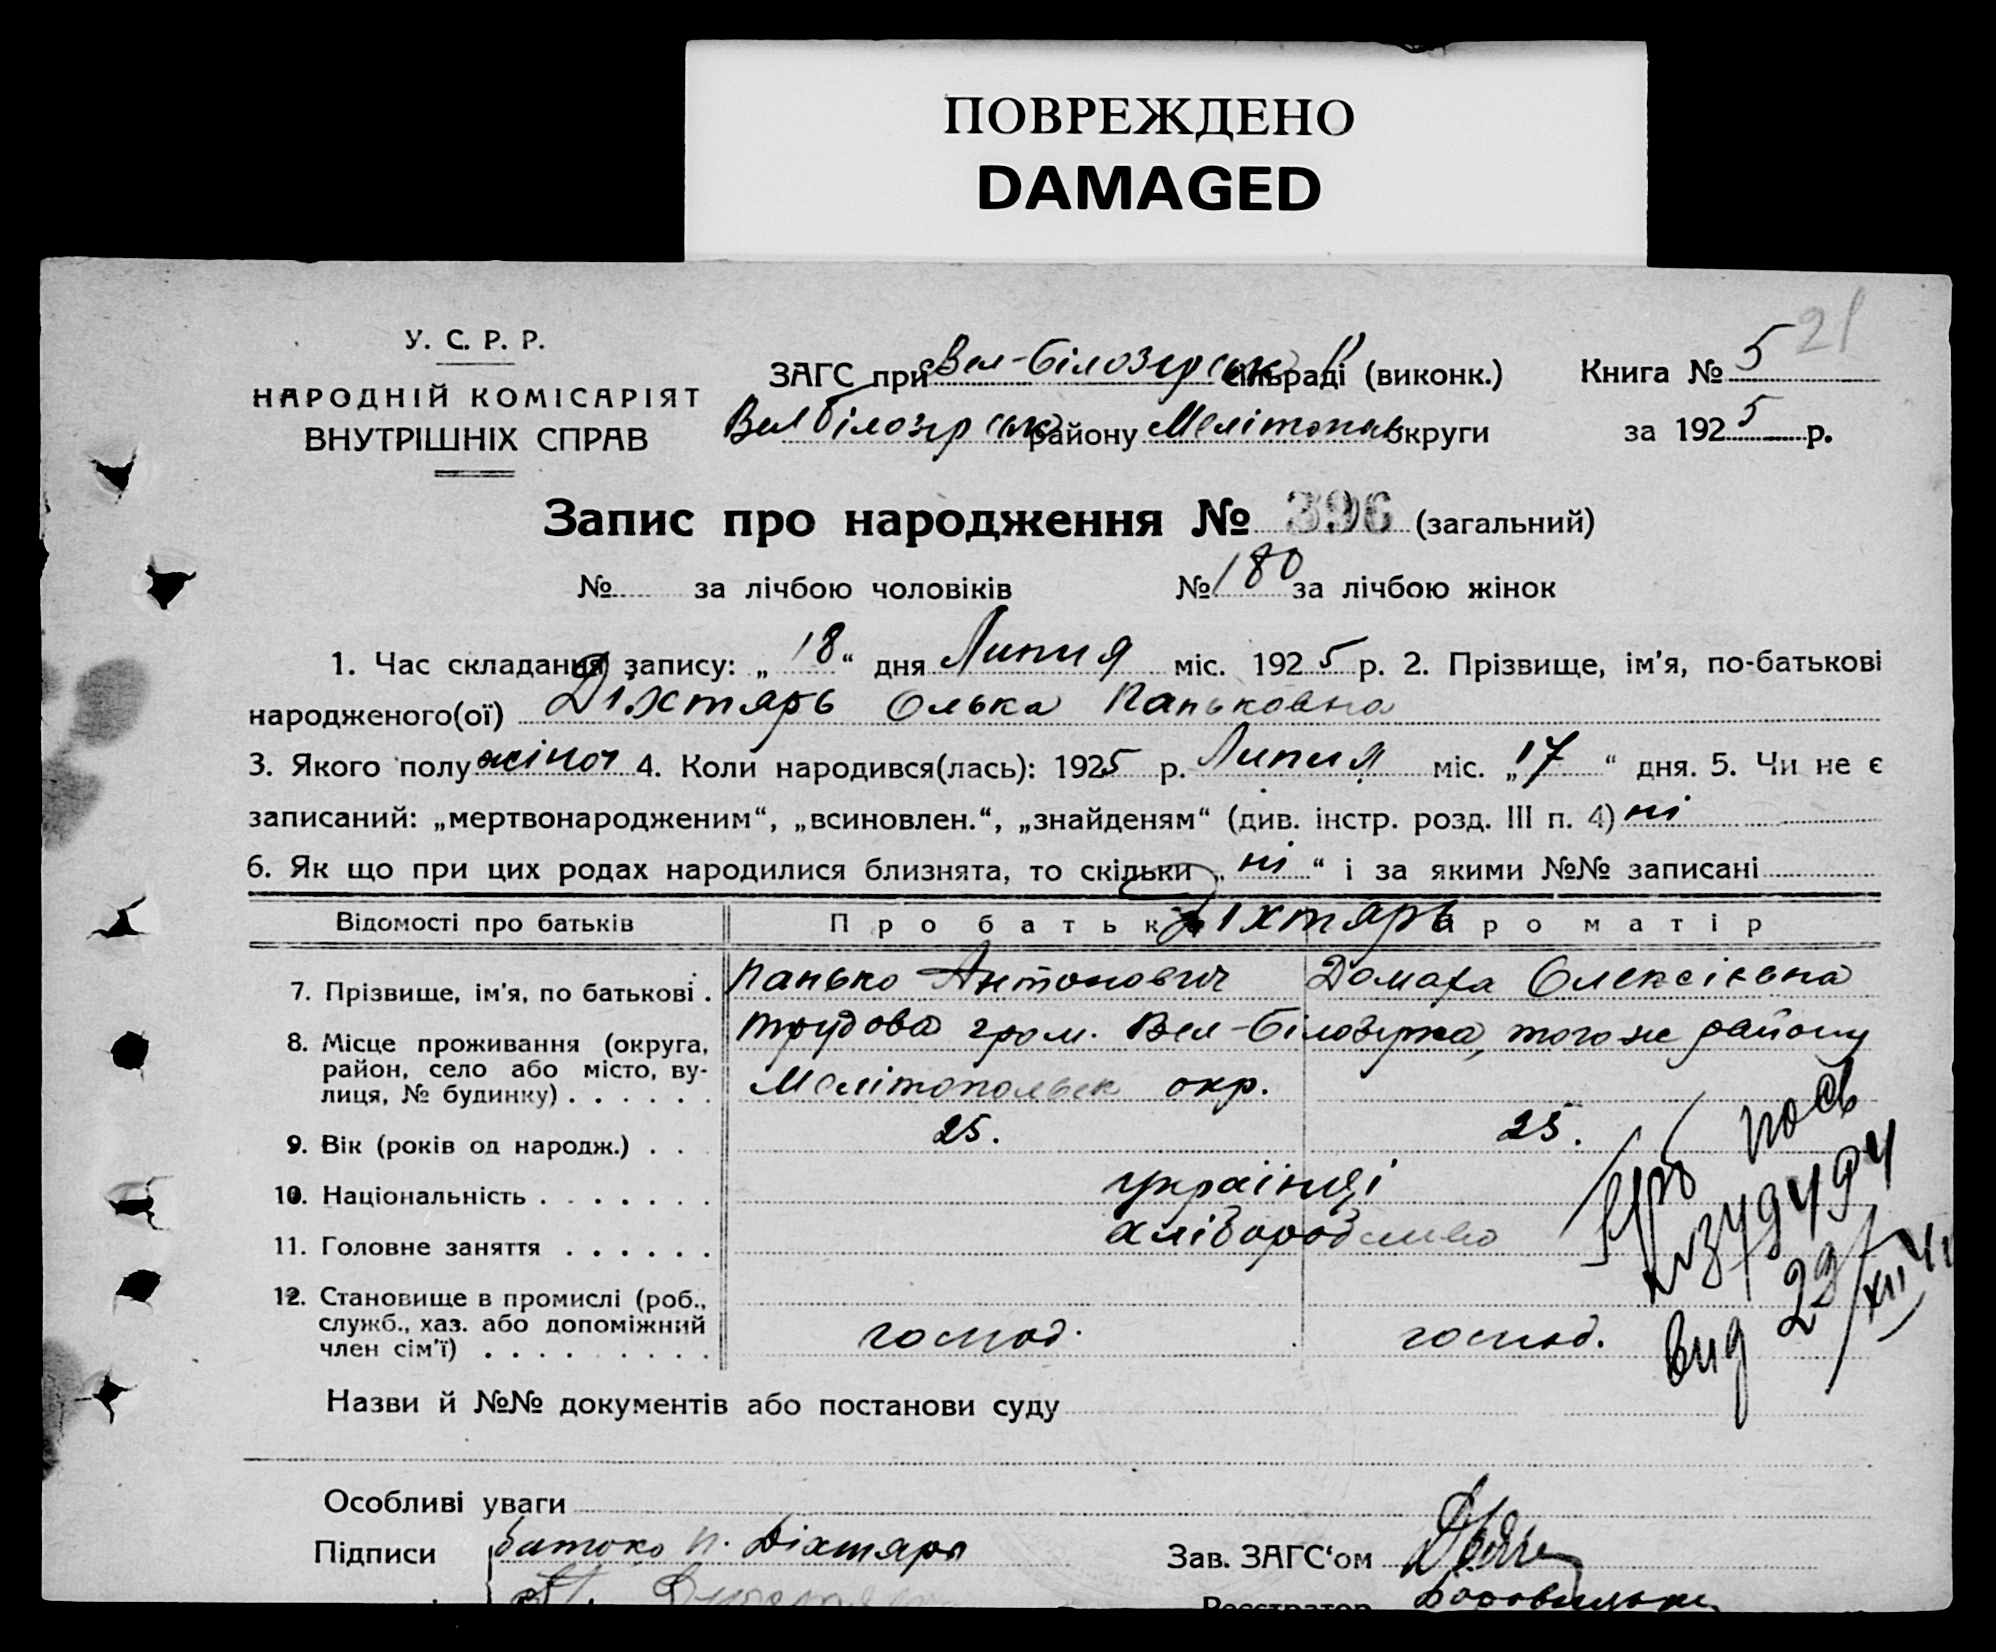 ПОВРЕЖДЕНО
DAMAGED
21
У. С. Р. Р.
НАРОДНІЙ КОМІСАРІЯТ
ВНУТРІШНІХ СПРАВ
ЗАГС при Вел-Білозірськ сільраді (виконк.)
Вел Білозірськ району Мелітопав округи
Книга № 5
за 1925 р.
Запис про народження № 396 (загальний)
№ за лічбою чоловіків № 180 за лічбою жінок
1. Час складання запису: „18“ дня Липня міс. 1925 р. 2. Прізвище, ім'я, по-батькові
народженого(ої) Діхтярь Олька Паньковна
3. Якого полу жіноч 4. Коли народився(лась): 1925 р. Липня міс. „17“ дня. 5. Чи не є
записаний: „мертвонародженим“, „всиновлен.“, „знайденям“ (див. інстр. розд. III п. 4) ні
6. Як що при цих родах народилися близнята, то скільки „ні“ і за якими №№ записані
Відомості про батьків Про батька Діхтярь Про матір
7. Прізвище, ім'я, по батькові. Панько Антонович Домаха Олексієвна
8. Місце проживання (округа, район, село або місто, вулиця, № будинку) Трудова гром. Вел-Білозірка, того же району
Мелітопольск окр.
9. Вік (років од народж.) 25. 25.
10. Національність українці
11. Головне заняття хліборобство
12. Становище в промислі (роб., служб., хаз. або допоміжний член сім'ї) господ. господ.
вид 29/XII 41
Назви й №№ документів або постанови суду
Особливі уваги
Підписи батько П. Діхтярь
Зав. ЗАГС'ом
Реєстратор